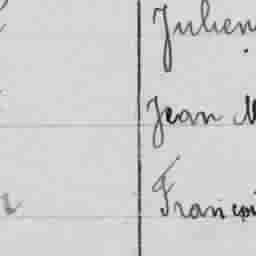 Julien
Jean M
Françoi